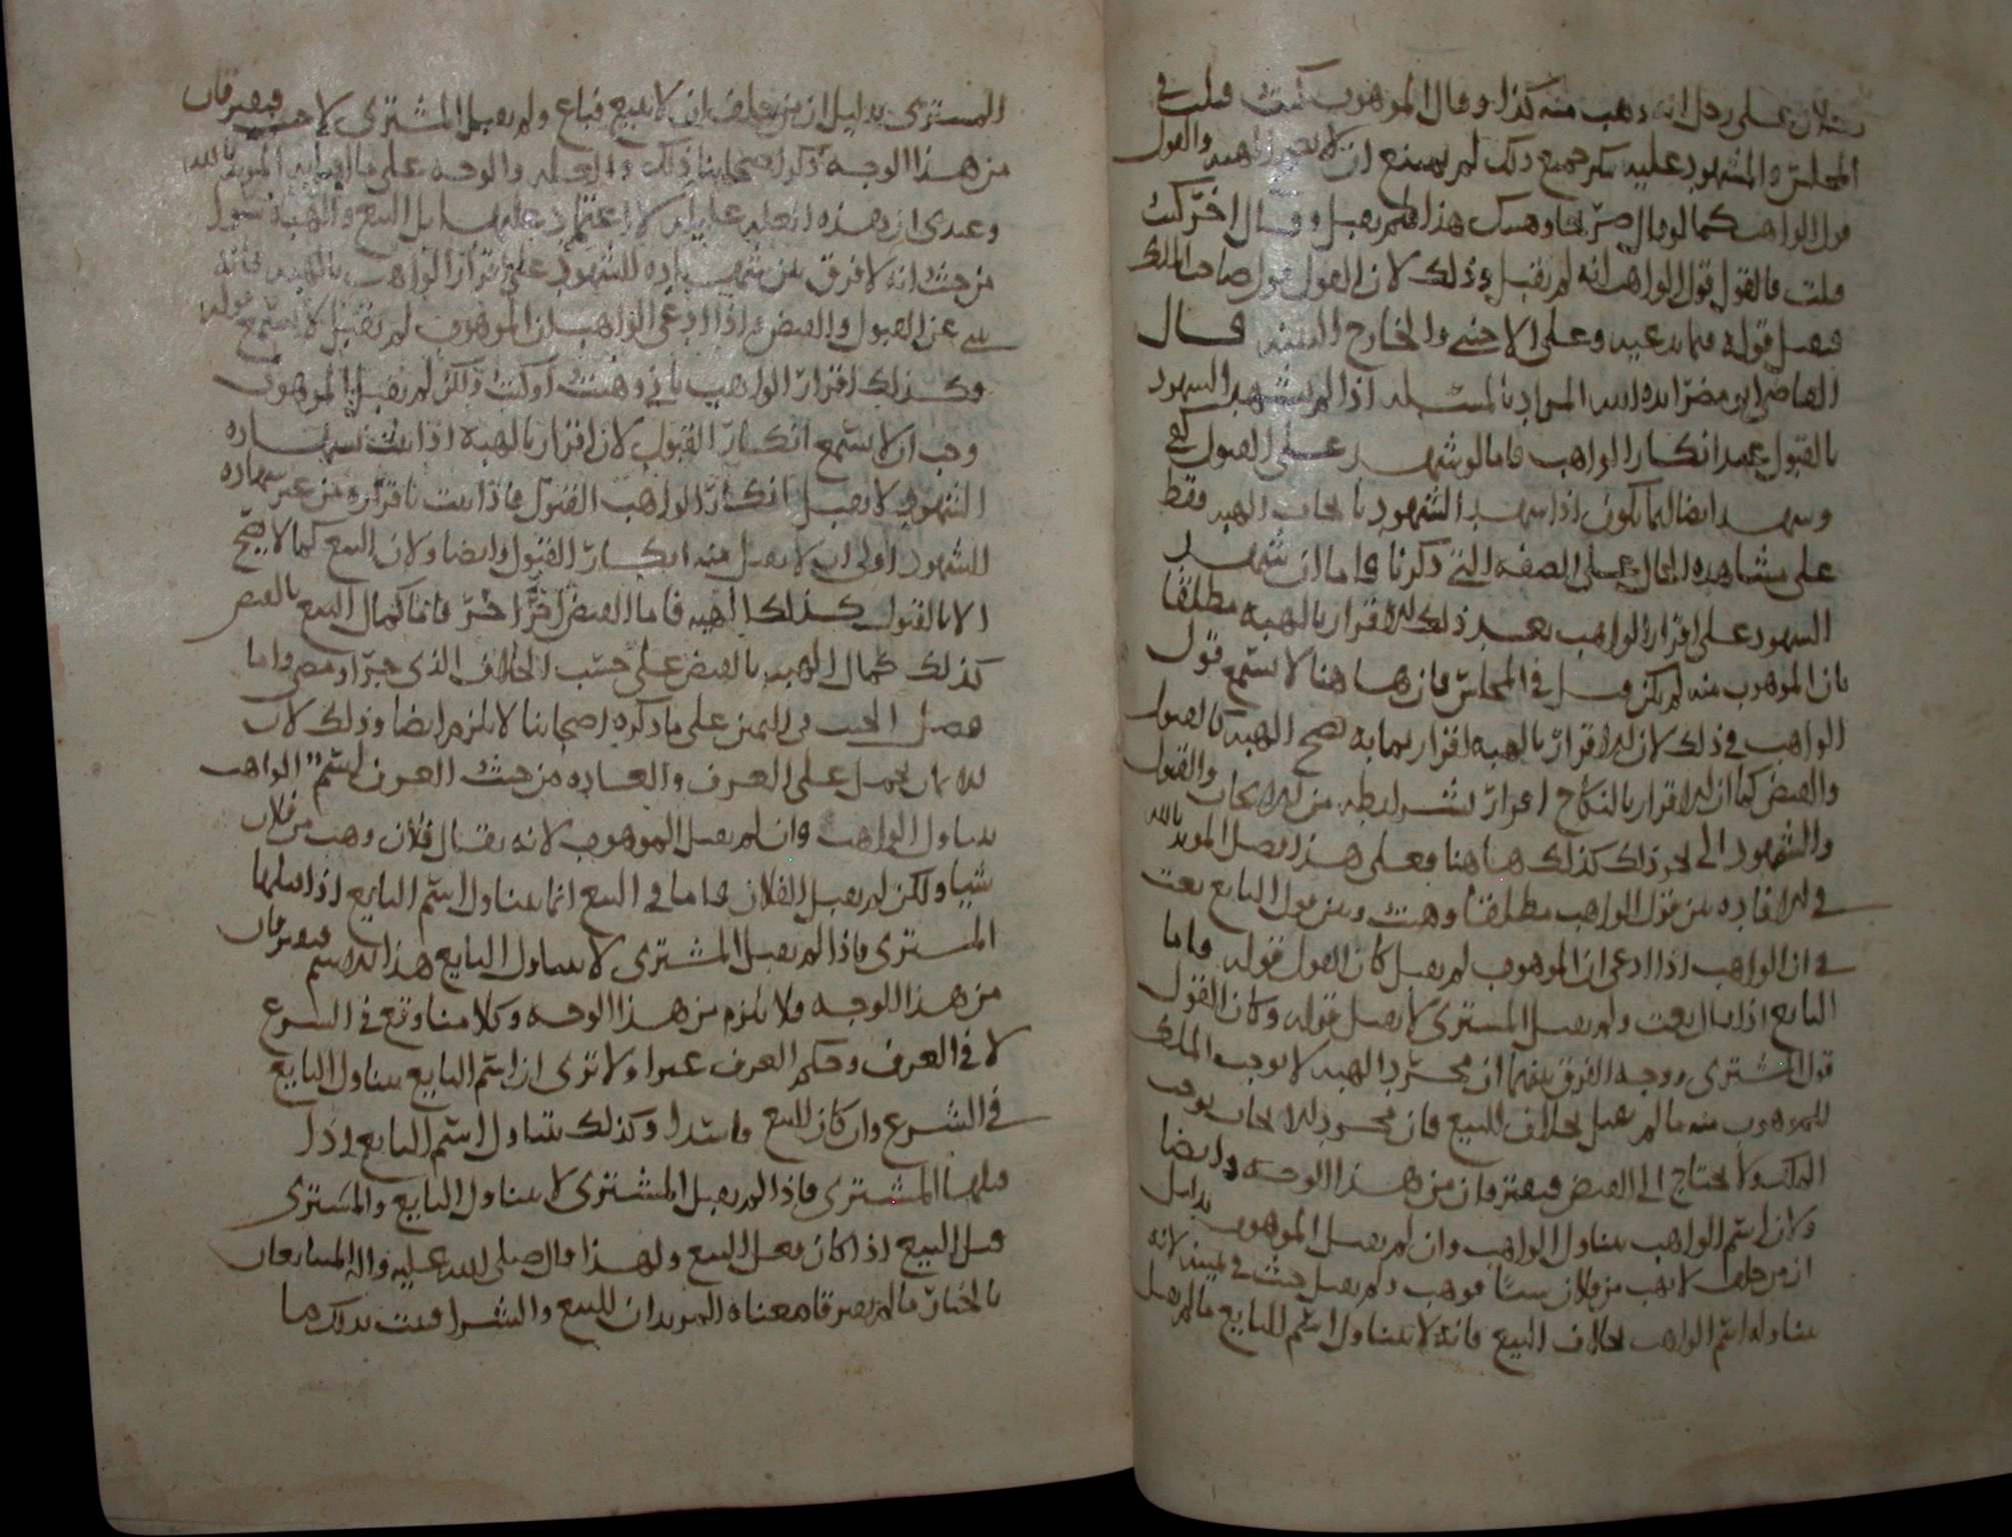 رجلان على رجل انه وهب منه كذا وقال الموهوب كنت قبلت في
المجلس والمشهود عليه ينكر جميع ذلك لم يمتنع ان لا تصح الهبة والقول
قول الواهب كما لو قال حر لحا وهبتك هذا فلم يقبل وقال اخر كنت
قبلت فالقول قول الواهب انه لم يقبل وذلك لان القول قول صاحب الملك
فيقبل قوله فيما يدعيه وعلى الاجنبي والخارج البينة قال
القاضي ابو مضر ايده الله المراد بالمسئلة اذا لم يشهد الشهود
بالقبول بعد انكار الواهب فاما لو شهد على القبول كفى
وشهد ايضا انما يكون اذا شهد الشهود بايجاب الهبة فقط
على مشاهدة الحال على الصفة التي ذكرنا فاما ان شهد
الشهود على اقرار الواهب بعد ذلك الاقرار بالهبة مطلقا
بان الموهوب منه لم يكن قبل في المجلس فان هاهنا لا يستمع قول
الواهب في ذلك لان الاقرار بالهبة اقرار بما به تصح الهبة كالقبول
والقبض كما ان الاقرار بالنكاح اقرار بشرايطه من الايجاب والقبول
والشهود الى نحو ذلك كذلك هاهنا فعلى هذا فصل المويد بالله
في الافادة بين قول الواهب مطلقا وهبت وبين قول البايع بعت
في ان الواهب اذا ادعى ان الموهوب لم يقبل كان القول قوله فاما
البايع اذا قال بعت ولم يقبل المشتري لا يقبل قوله وكان القول
قول المشتري ووجه الفرق بينهما ان مجرد الهبة لا يوجب الملك
للموهوب منه ما لم يقبل بخلاف البيع فان مجرد الايجاب يوجب
الملك ولا يحتاج الى القبض فيفترقان من هذا الوجه وايضا
ولان اسم الواهب يتناول الواهب وان لم يقبل الموهوب بدليل
ان من حلف لا يهب من فلان شيئا فوهب ولم يقبل حنث في يمينه لانه
يتناوله اسم الواهب بخلاف البيع فانه لا يتناول اسم البايع ما لم يقبل
المشتري بدليل ان من حلف ان لا يبيع فباع ولم يقبل المشتري لا حنث فيفترقان
من هذا الوجه ذكر اصحابنا ذلك والعلة والوجه على ما المويد بالله
وعندي ان هذه العلة عليلة لا اعتماد عليها بل البيع والهبة سوا
من حيث انه لا فرق بين شهادة الشهود على اقرار الواهب بالهبة فانه
يبنى عن القبول والقبض واذا ادعى الواهب ان الموهوب لم يقبل لا يستمع قوله
وكذلك اقرار الواهب باني وهبت او كنت ولكن لم يقبل الموهوب
وجب ان لا يستمع انكار القبول لان اقراره بالهبة اذا ثبت بشهادة
الشهود لا يقبل انكار الواهب القبول فاذا ثبت باقراره من غير شهادة
الشهود اولى ان لا يقبل منه انكار القبول وايضا ولان البيع كما لا يصح
الا بالقبول كذلك الهبة فاما القبض اخر فانما كمال البيع بالقبض
كذلك كمال الهبة بالقبض على حسب الخلاف الذي جرى ومضى واما
فصل الحنث في اليمين على ما ذكره اصحابنا لا يلزم ايضا وذلك لان
الايمان تحمل على العرف والعادة من حيث العرف اسم الواهب
يتناول الواهب وان لم يقبل الموهوب لانه يقال فلان وهب من فلان
شيئا ولكن لم يقبل الفلان فاما في البيع انما يتناول اسم البايع اذا قبلها
المشتري فاذا لم يقبل المشتري لا يتناول البايع هذا الاسم فيفترقان
من هذا الوجه ولا يلزم من هذا الوجه وكلامنا وقع في الشرع
لا في العرف وحكم العرف غير اولا ترى ان اسم البايع يتناول البايع
في الشرع وان كان البيع فاسدا وكذلك يتناول اسم البايع اذا
قبلها المشتري فاذا لم يقبل المشتري لا يتناول البايع والمشتري
قبل البيع اذا كان بعد البيع ولهذا قال صلى الله عليه واله المتبايعان
بالخيار ما لم يفترقا معناه المريدان للبيع والشرا فثبت بذلك ما